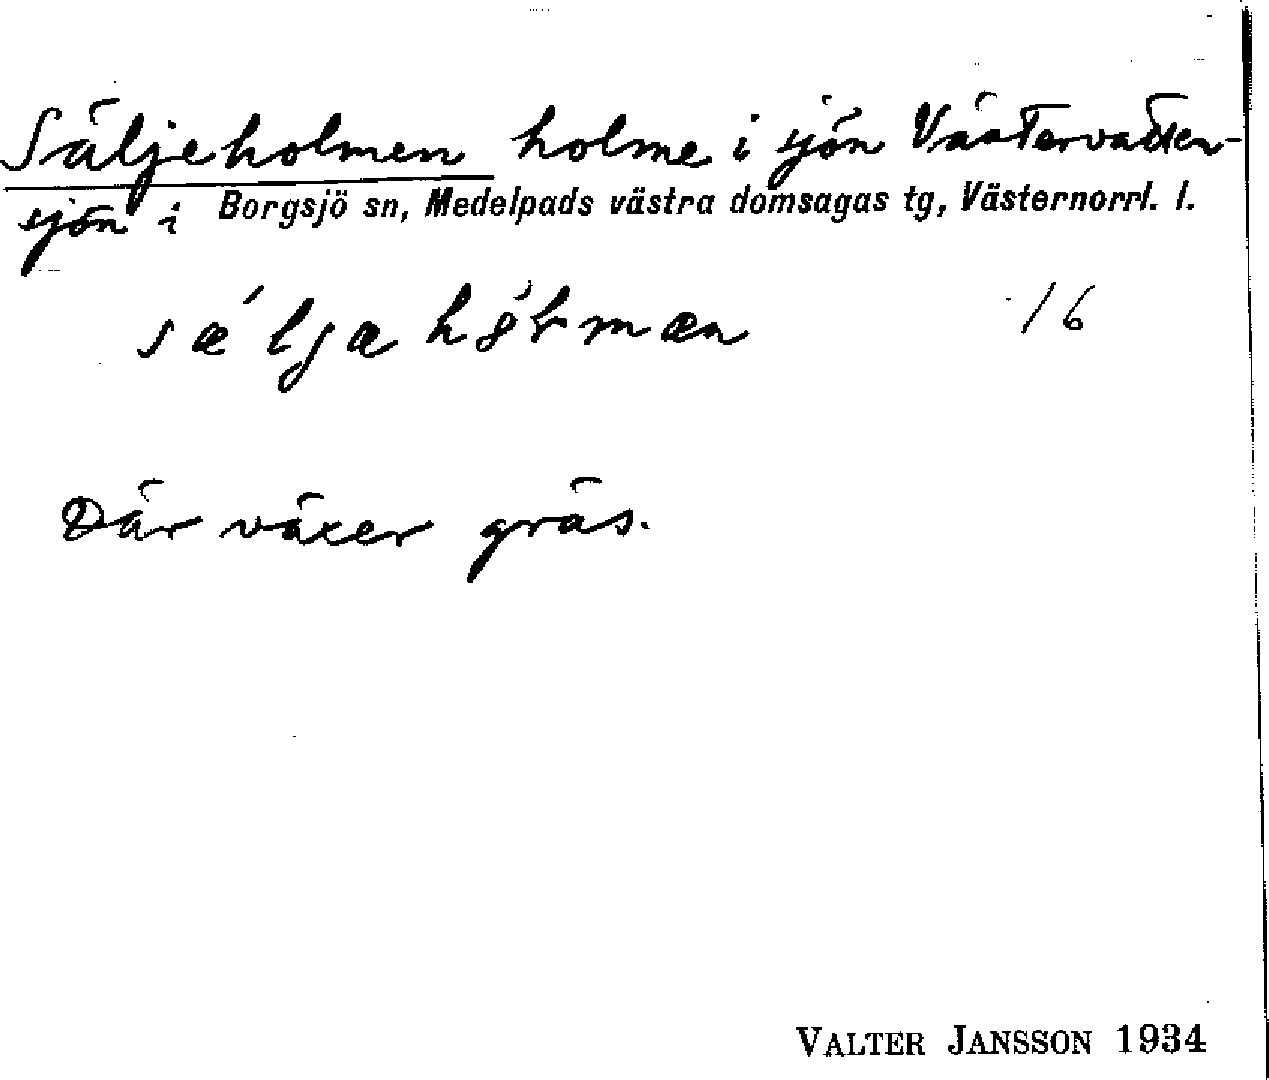 Säljeholmen holme i sjön Västervatten-
sjön i Borgsjö sn, Medelpads västra domsagas tg, Västernorrl. l.
16
Där växer gräs.
VALTER JANSSON 1934